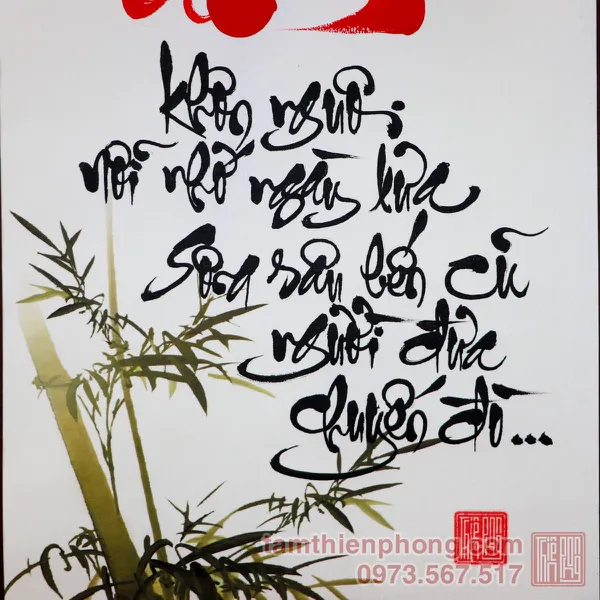 Không nguôi
nỗi nhớ ngày xưa
Sông sâu bến cũ
người đưa
chuyến đò...
tamthienphong.com
0973.567.517